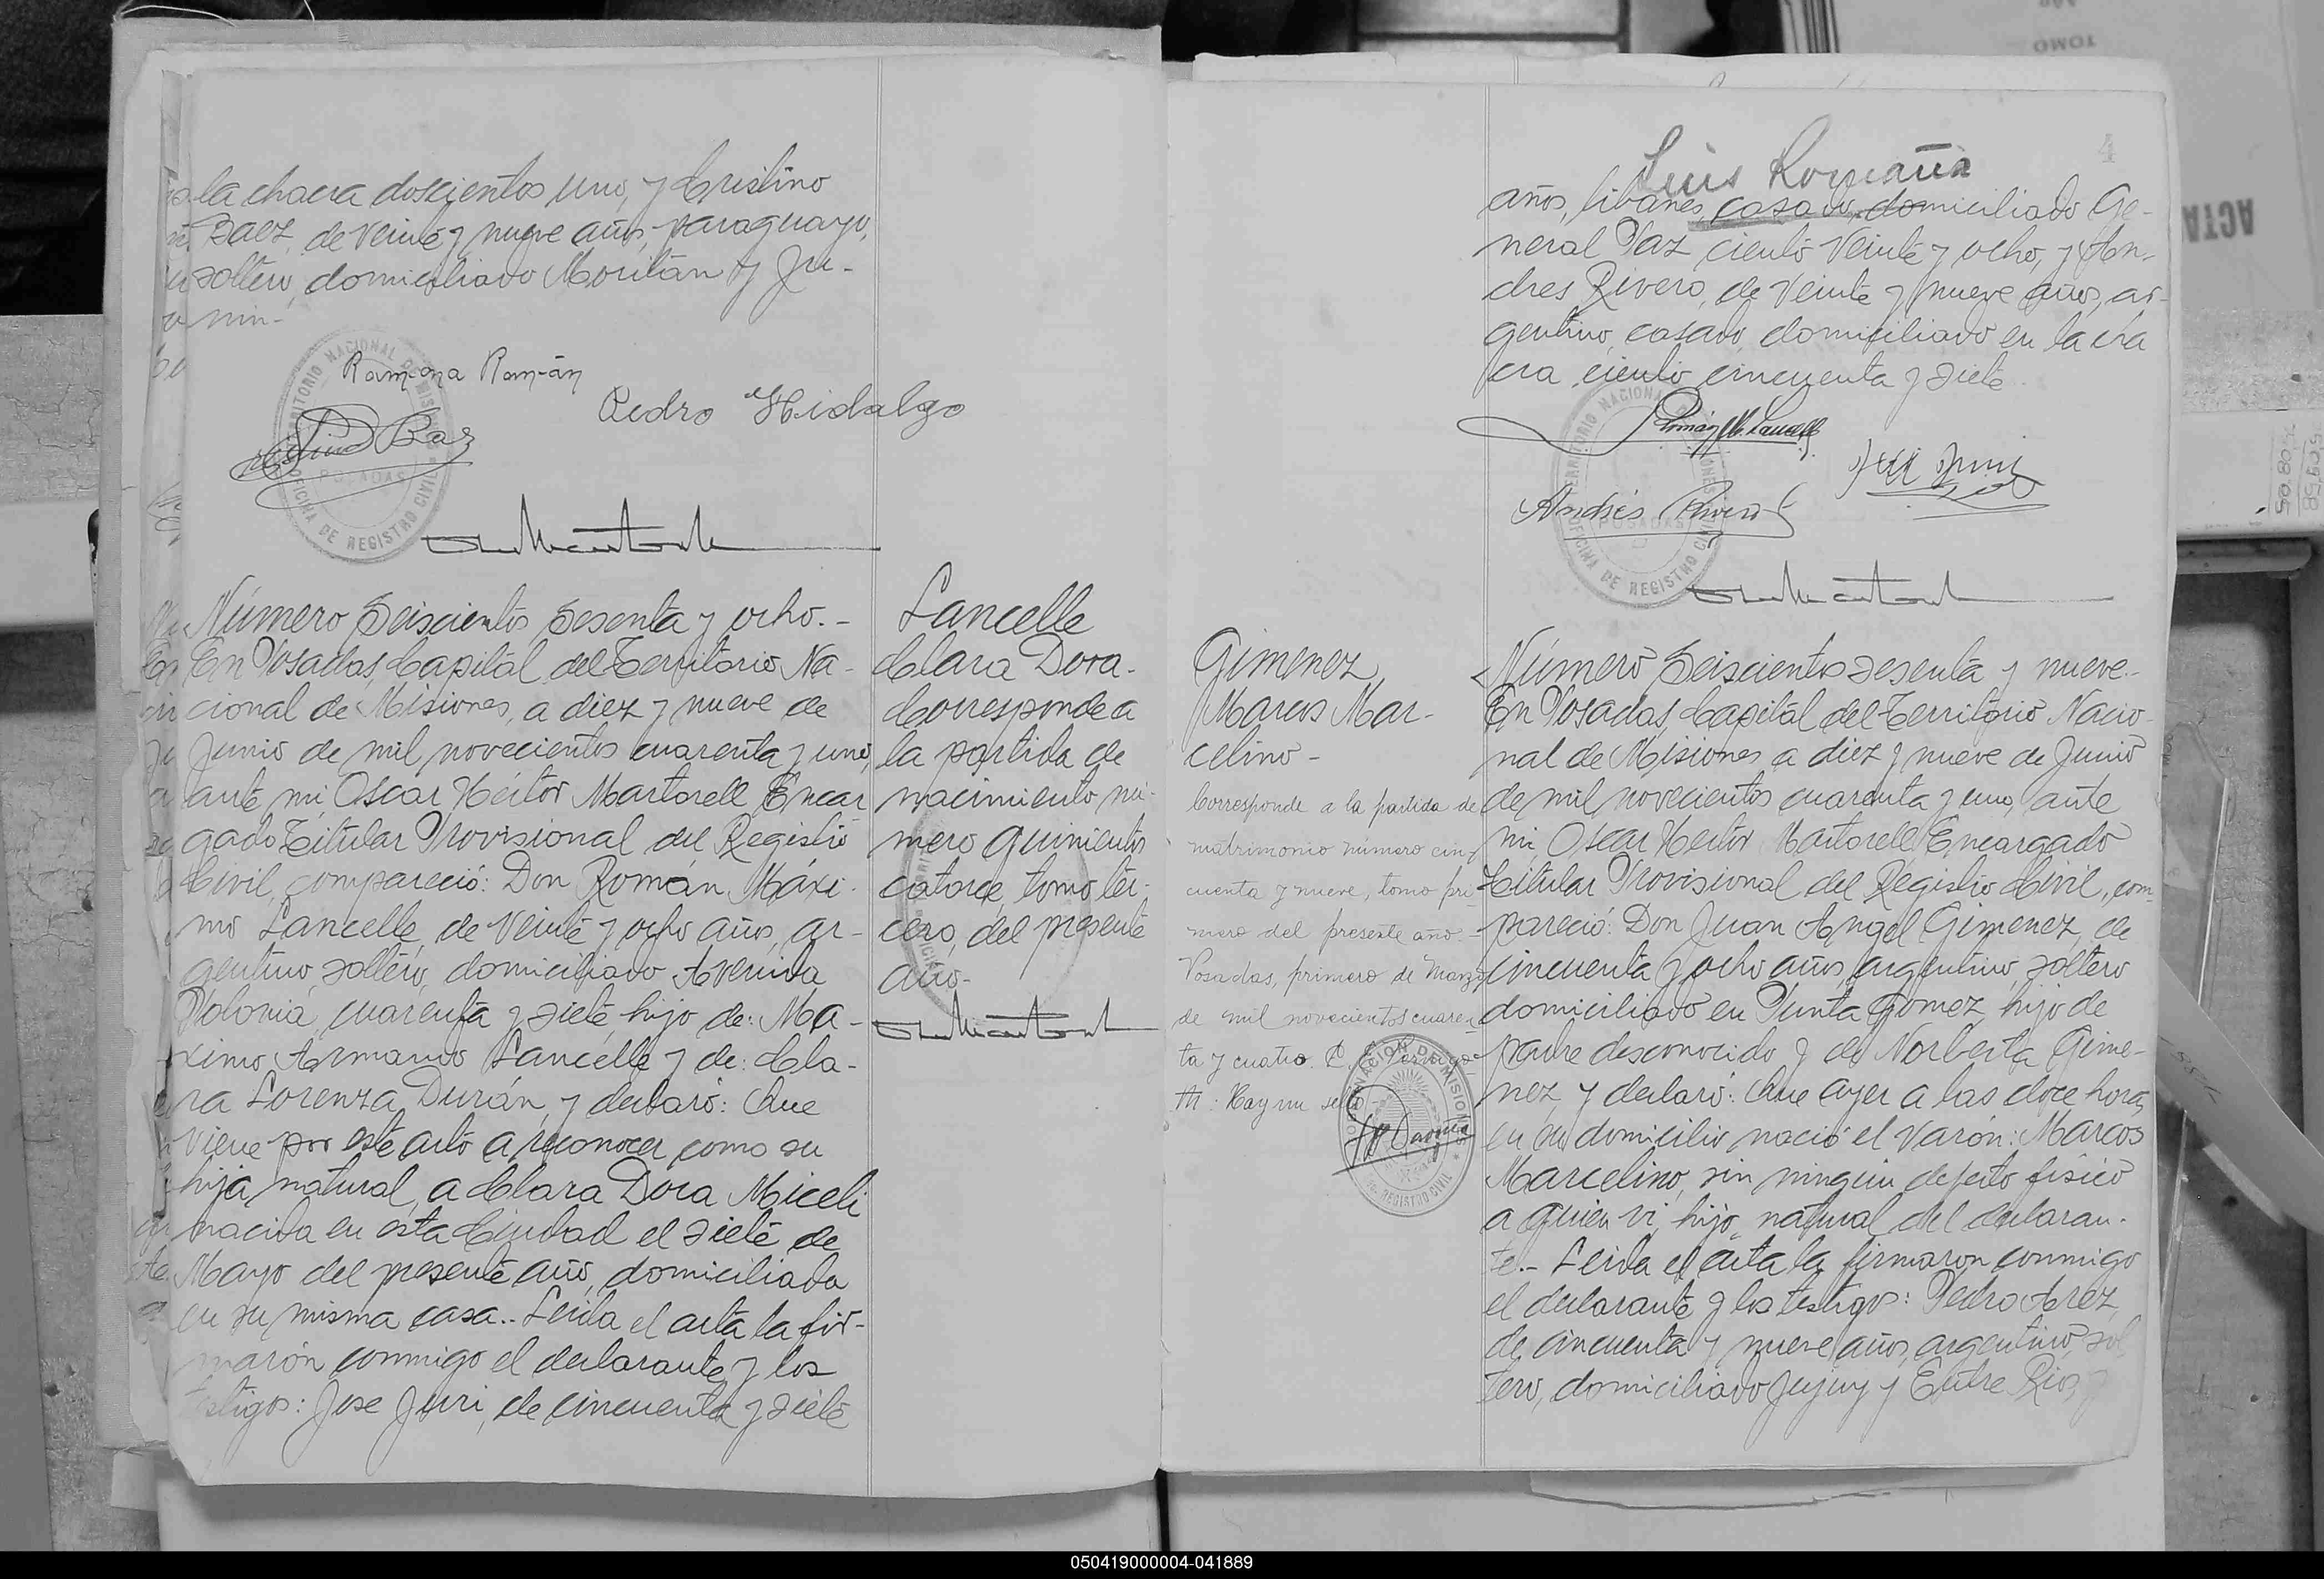 la chacra doscientos uno, y Cristino
Baez, de veinte y nueve años, paraguayo,
soltero, domiciliado Moritán y Ju-
nin-
Ramona Román
Pedro Hidalgo
TERRITORIO NACIONAL DE MISIONES
POSADAS
OFICINA DE REGISTRO CIVIL
Número Seiscientos Sesenta y ocho.-
En Posadas, Capital del Territorio Na-
cional de Misiones, a diez y nueve de
Junio de mil novecientos cuarenta y uno,
ante mi Oscar Héctor Martorell Encar
gado Titular Provisional del Registro
Civil, compareció: Don Román Máxi-
mo Lancelle, de veinte y ocho años, ar-
gentino, soltero, domiciliado Avenida
Polonia cuarenta y siete, hijo de: Má-
ximo Armando Lancelle y de: Cla-
ra Lorenza Durán, y declaró: Que
viene por este acto a reconocer como su
hija natural, a Clara Dora Miceli
nacida en esta Ciudad el siete de
Mayo del presente año, domiciliada
en su misma casa.. Leida el acta la fir-
marón conmigo el declarante y los
testigos: Jose Juri, de cincuenta y siete
Lancelle
Clara Dora.
Corresponde a
la partida de
nacimiento nú-
mero quinientos
catorce, tomo ter-
cero, del presente
año-
Luis Romaña
años, libanes, casado, domiciliado Ge-
neral Paz ciento veinte y ocho, y An-
dres Rivero, de veinte y nueve años, ar-
gentino, casado, domiciliado en la cha
cra ciento cincuenta y siete
Andrés Rivero
TERRITORIO NACIONAL DE MISIONES
POSADAS
OFICINA DE REGISTRO CIVIL
Gimenez
Marcos Mar-
celino-
Corresponde a la partida de
matrimonio número cin-
cuenta y nueve, tomo pri
mero del presente año.-
Posadas, primero de Marzo
de mil novecientos cuaren
ta y cuatro.
Hay un sello
GOBERNACION DE MISIONES
REGISTRO CIVIL
Número Seiscientos sesenta y nueve.-
En Posadas, Capital del Territorio Nacio-
nal de Misiones a diez y nueve de Junio
de mil novecientos cuarenta y uno, ante
mi Oscar Hector Martorell Encargado
Titular Provisional del Registro Civil, com-
pareció: Don Juan Angel Gimenez, de
cincuenta y ocho años, argentino, soltero
domiciliado en Punta Gomez, hijo de
padre desconocido y de Norberta Gime-
nez, y declaró: Que ayer a las doce horas,
en su domicilio nació el varón: Marcos
Marcelino, sin ningun defecto fisico
a quien vi, hijo natural del declaran-
te.- Leida el acta la firmaron conmigo
el declarante y los testigos: Pedro Arez,
de cincuenta y nueve años, argentino, sol
tero, domiciliado Jujuy y Entre Rios, y
TOMO
ACTA
050419000004-041889